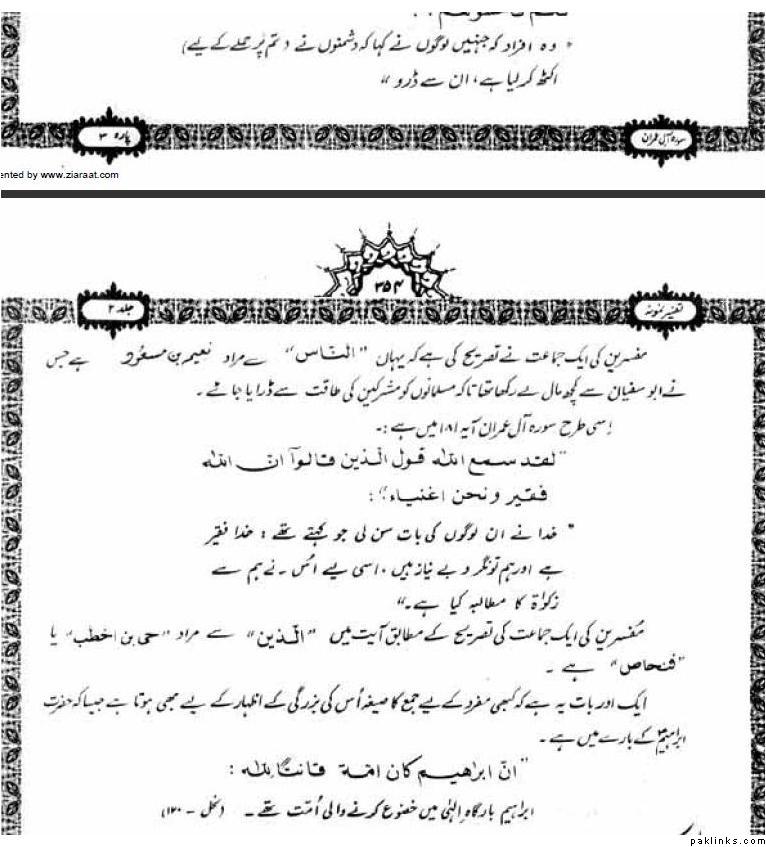 " وہ افراد کہ جنہیں لوگوں نے کہا کہ دشمنوں نے (تم پر حملے کے لیے)
اکٹھ کرلیا ہے، ان سے ڈرو "
پارہ ۳
سورہ آل عمران
ented by www.ziaraat.com
۳۵۴
جلد ۲
تفسیر نمونہ
مفسرین کی ایک جماعت نے تصریح کی ہے کہ یہاں "الناس" سے مراد نعیم بن مسعود ہے جس
نے ابوسفیان سے کچھ مال لے رکھا تھا تاکہ مسلمانوں کو مشرکین کی طاقت سے ڈرایا جائے ۔
اسی طرح سورہ آل عمران آیہ ۱۸۱ میں ہے :۔
"لقد سمع الله قول الذين قالوآ ان الله
فقير و نحن اغنياء" :
" خدا نے ان لوگوں کی بات سن لی جو کہتے تھے : خدا فقیر
ہے اور ہم تونگر و بے نیاز ہیں ، اسی لیے اُس ۔ نے ہم سے
زکوٰۃ کا مطالبہ کیا ہے ۔"
مُفسرین کی ایک جماعت کی تصریح کے مطابق آیت میں "الّذين" سے مراد "حی بن اخطب" یا
"فنحاص" ہے ۔
ایک اور بات یہ ہے کہ کبھی مفرد کے لیے جمع کا صیغہ اُس کی بزرگی کے اظہار کے لیے بھی ہوتا ہے جیسا کہ حضرت
ابراہیمؑ کے بارے میں ہے ۔
"انّ ابراهيم كان امّة قانتًا لله :
ابراہیم بارگاہِ الہٰی میں خضوع کرنے والی اُمّت تھے ۔ (نحل - ۱۲۰)
paklinks.com